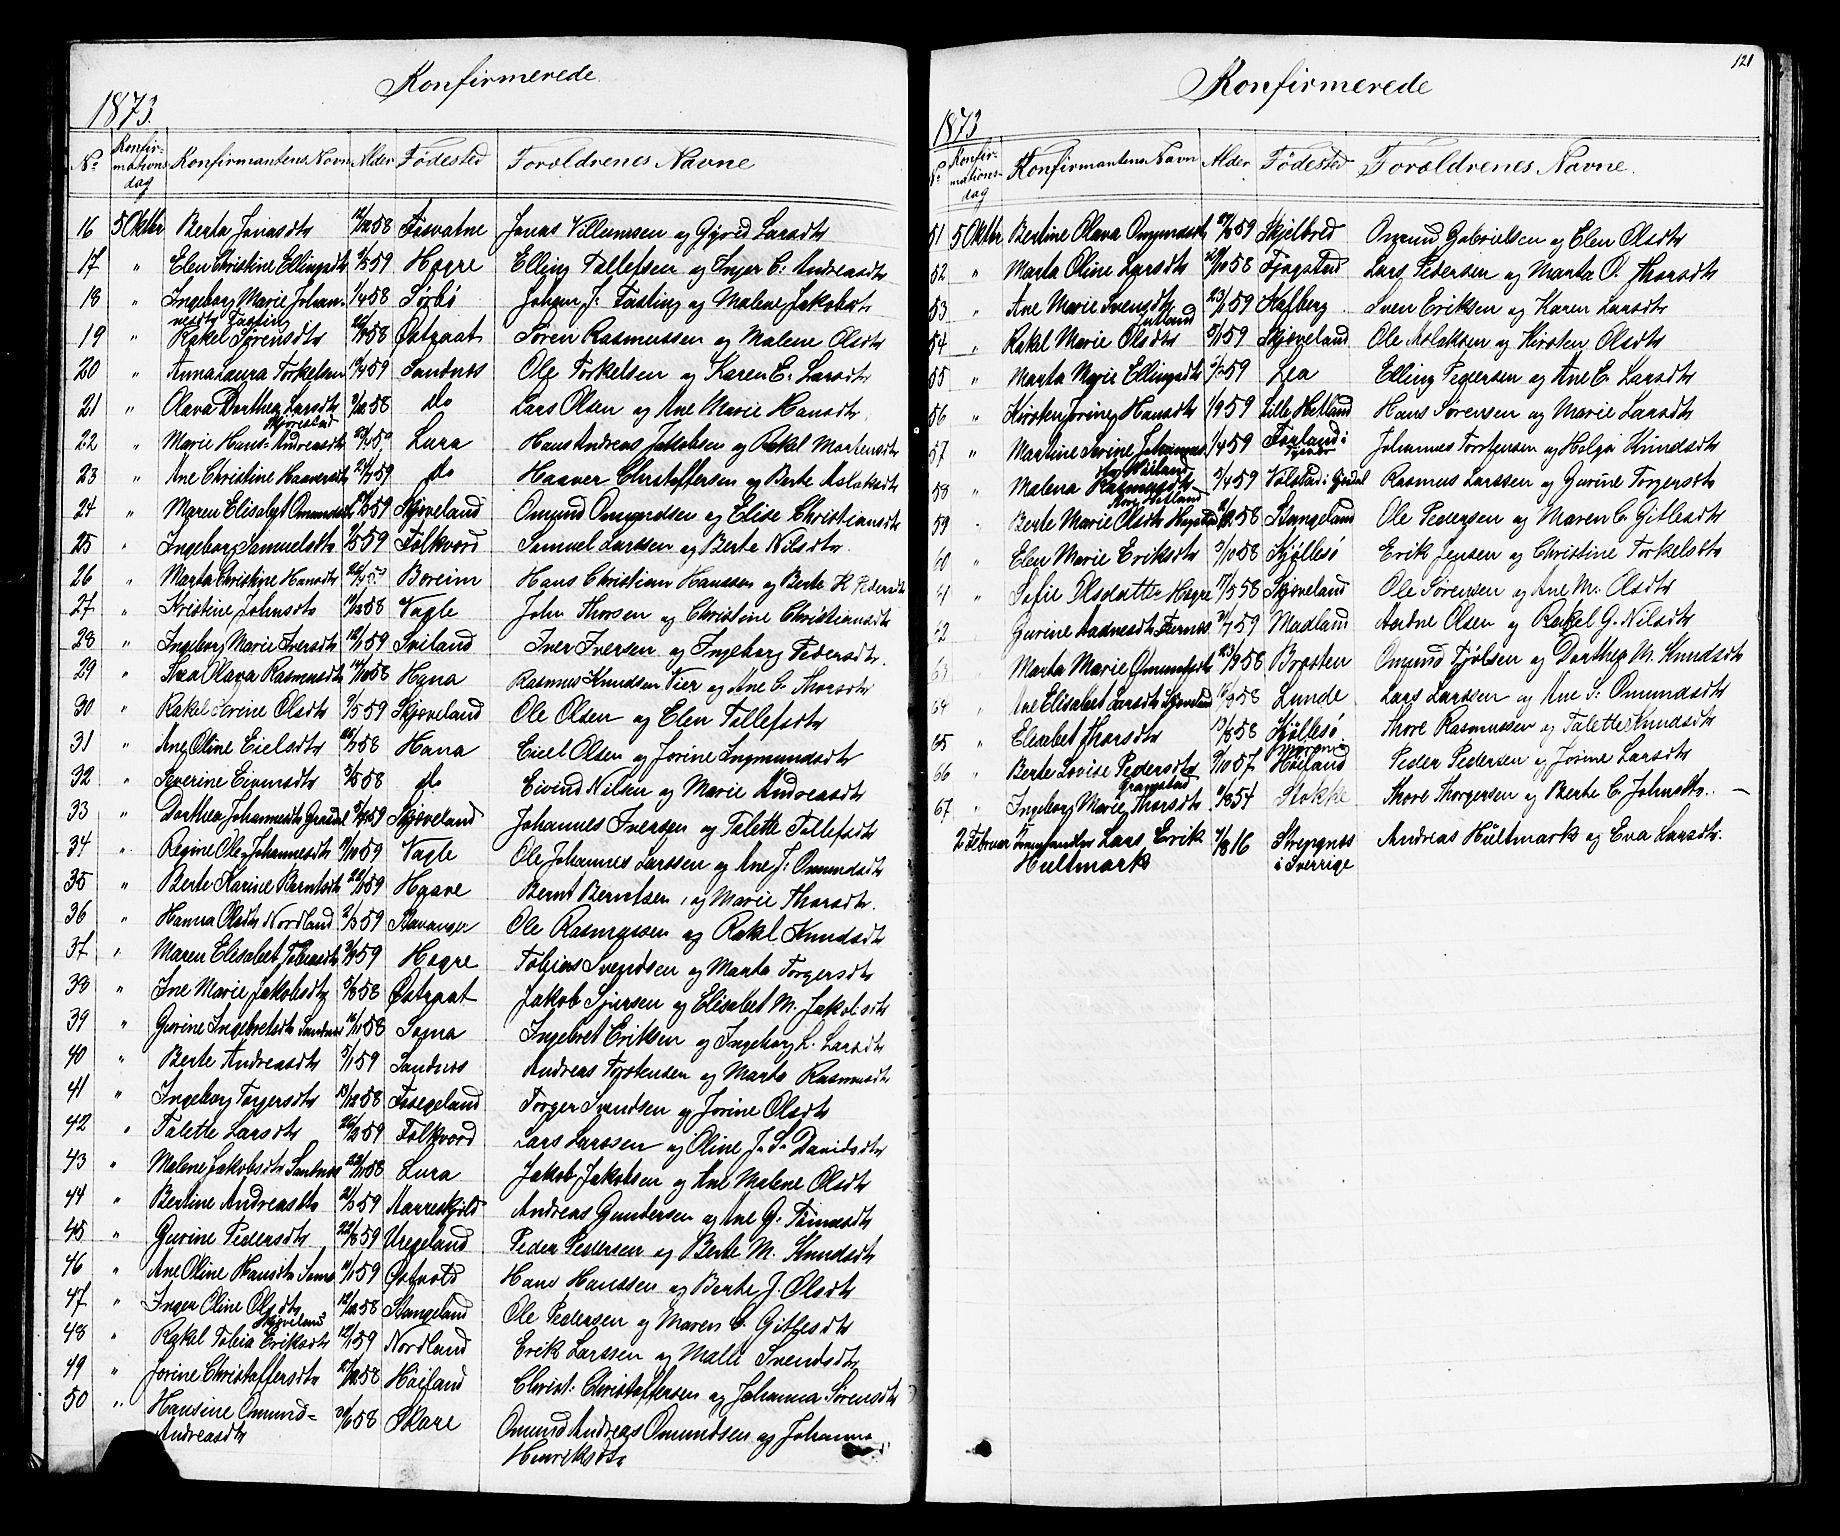 Konfirmerede
1873.
No Konfirmationsdag Konfirmantens Navn Alder Fødested Forældrenes Navne
16 5 Oktbr Berta Jonasdtr 12/12 58 Fosvatne Jonas Villumsen og Gyrid Larsdtr
17 " Elen Christine Ellingsdtr 59 Hogre Elling Tollefsen og Inger C. Andreasdtr
18 " Ingeborg Marie Johan- 1/4 58 Sørbø Johan J. Fasting og Malene Jakobsdtr
nesdtr Fasting
19 " Rakel Sørensdtr 58 Østraat Søren Rasmussen og Malene Olsdtr
20 " Anna Laura Torkelsen 59 Sandnes Ole Torkelsen og Karen E. Larsdtr
21 " Olava Dorthea Larsdtr 58 do Lars Olsen og Ane Marie Hansdtr
22 " Marie Hans-Andreasdtr Lura Hans Andreas Jakobsen og Rakel Martensdtr
23 " Ane Christine Haaversdtr 59 do Haaver Christoffersen og Berte Aslaksdtr
24 " Maren Elisabet Omundsdtr 59 Skjæveland Omund Omundsen og Elise Christiansdtr
25 " Ingeborg Samuelsdtr 59 Folkvord Samuel Larssen og Berte Nilsdtr
26 " Marta Christine Hansdtr Boreim Hans Christian Hanssen og Berte K. Pedersdtr
27 " Kristine Johnsdtr 58 Vagle John Thorsen og Christine Christiansdtr
28 " Ingeborg Marie Iversdtr 12/1 59 Sviland Iver Iversen og Ingeborg Pedersdtr.
29 " Olava Rasmusdtr 58 Hana Rasmus Knudsen Tier og Ane C. Thorsdtr
30 " Rakel Serine Olsdtr 59 Skjæveland Ole Olsen og Elen Tollefsdtr
31 " Ane Oline Eielsdtr 58 Hana Eiel Olsen og Jorine Ingmundsdtr
32 " Severine Eivindsdtr 58 do Eivind Nilsen og Marie Andreasdtr
33 " Dorthea Johannesdtr 59 Skjæveland Johannes Iversen og Talette Tollefsdtr
34 " Regine Ole-Johannesdtr 59 Vagle Ole Johannes Larssen og Ane J. Omundsdtr
35 " Berte Karine Berntsdtr 59 Haave Bernt Berntsen og Marie Thorsdtr.
36 " Hanna Olsdtr Nordland 2/3 59 Stavanger Ole Rasmussen og Rakel Knudsdtr
37 " Maren Elisabet Tobiasdtr 59 Hogre Tobias Svendsen og Marta Torgersdtr
38 " Ine Marie Jakobsdtr 58 Østraat Jakob Sjursen og Elisabet M. Jakobsdtr
39 " Gurine Ingebretsdtr Sandnes 58 Sogna Ingebret Eriksen og Ingeborg L. Larsdtr
40 " Berte Andreasdtr 5/1 59 Sandnes Andreas Torstensen og Marta Rasmusdtr
41 " Ingeborg Torgersdtr 13/12 58 Foregeland Torger Svendsen og Jorine Olsdtr
42 " Talette Larsdtr 59 Folkvord Lars Larssen og Oline J. S. Davidsdtr
43 " Malene Jakobsdtr Sandnes 58 Lura Jakob Jakobsen og Ane Malene Olsdtr
44 " Bertine Andreasdtr 59 Aarreskjold Andreas Gundersen og Ane G. Tomasdtr
45 " Gurine Pedersdtr 59 Uregeland Peder Pedersen og Berte M. Knudsdtr
46 " Ane Oline Hansdtr 59 Hans Hanssen og Berte J. Olsdtr
47 " Inger Oline Olsdtr 12/12 58 Stangeland Ole Pedersen og Maren C. Gitlesdtr
Skjæveland
48 " Rakel Tobia Eriksdtr 12/1 59 Nordland Erik Larssen og Malli Svendsdtr
49 " Jorine Christoffersdtr 58 Høiland Christ. Christoffersen og Johanna Sørensdtr
50 " Hansine Omund- 58 Skare Omund Andreas Omundsen og Johanna
Andreasdtr Henriksdtr
121
Konfirmerede
1873
No Konfirmationsdag Konfirmantens Navn Alder Fødested Forældrenes Navne.
51 5 Oktbr Bertine Olava Omundsdtr 59 Skjelbred Omund Gabrielsen og Elen Olsdtr
52 " Marta Oline Larsdtr 58 Tjogstad Lars Pedersen og Marta O. Thorsdtr
53 " Ane Marie Svensdtr 59 Stafberg Sven Eriksen og Karen Larsdtr
54 " Rakel Marie Olsdtr 59 Skjæveland Ole Aslaksen og Kirsten Olsdtr
55 " Marta Marie Ellingsdtr 59 Lea Elling Pedersen og Ane C. Larsdtr
56 " Kirsten Jorine Hansdtr 59 Lille Hetland Hans Sørensen og Marie Larsdtr
57 " Martine Serine Johannes 1/4 59 Forland i Johannes Torstensen og Helga Knudsdtr
58 " Malena Rasmusdtr 59 Volstad i Gjesdal Rasmus Larssen og Gurine Torgersdtr
59 Berte Marie Olsdtr 58 Stangeland Ole Pedersen og Maren C. Gitlesdtr
60 " Elen Marie Eriksdtr 58 Kjøllesø Erik Jensen og Christine Torkelsdtr
" Sofie Olsdatter Hogre 17/5 58 Skjæveland Ole Sørensen og Ane M. Olsdtr
62 Gurine Aadnesdtr 59 Madland Aadne Olsen og Rakel G. Nilsdtr
63 Marta Marie Omundsdtr 58 Brosten Omund Fjølsen og Dorthea M. Knudsdtr
64 " Ane Elisabet Larsdtr Skjæveland 58 Lunde Lars Larssen og Ane S. Omundsdtr
65 " Elisabet Thorsdtr 58 Kjøllesø Thore Rasmussen og Talette Knudsdtr
66 " Berte Lovise Pedersdtr 57 Høiland Peder Pedersen og Jorine Larsdtr
Gramstad
67 " Ingeborg Marie Thorsdtr 54 Stokke Thore Thorgersen og Berte C. Johnsdtr. —
2 Februar Lars Erik 1816 Strengnes Andreas Hultmark og Eva Larsdtr.
Hultmark i Sverrige